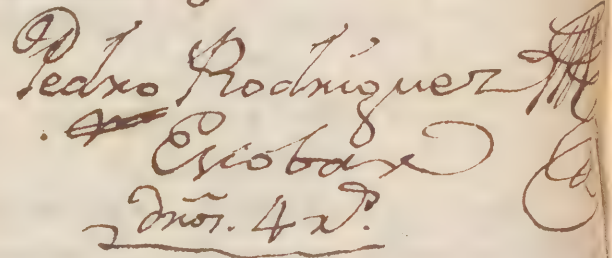 Pedro Rodríguez
Escobar
dros. 4 rs.